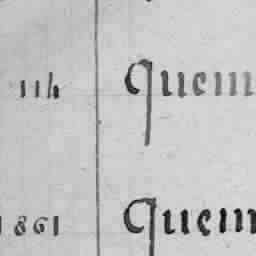 11h Quem
1861 Quem